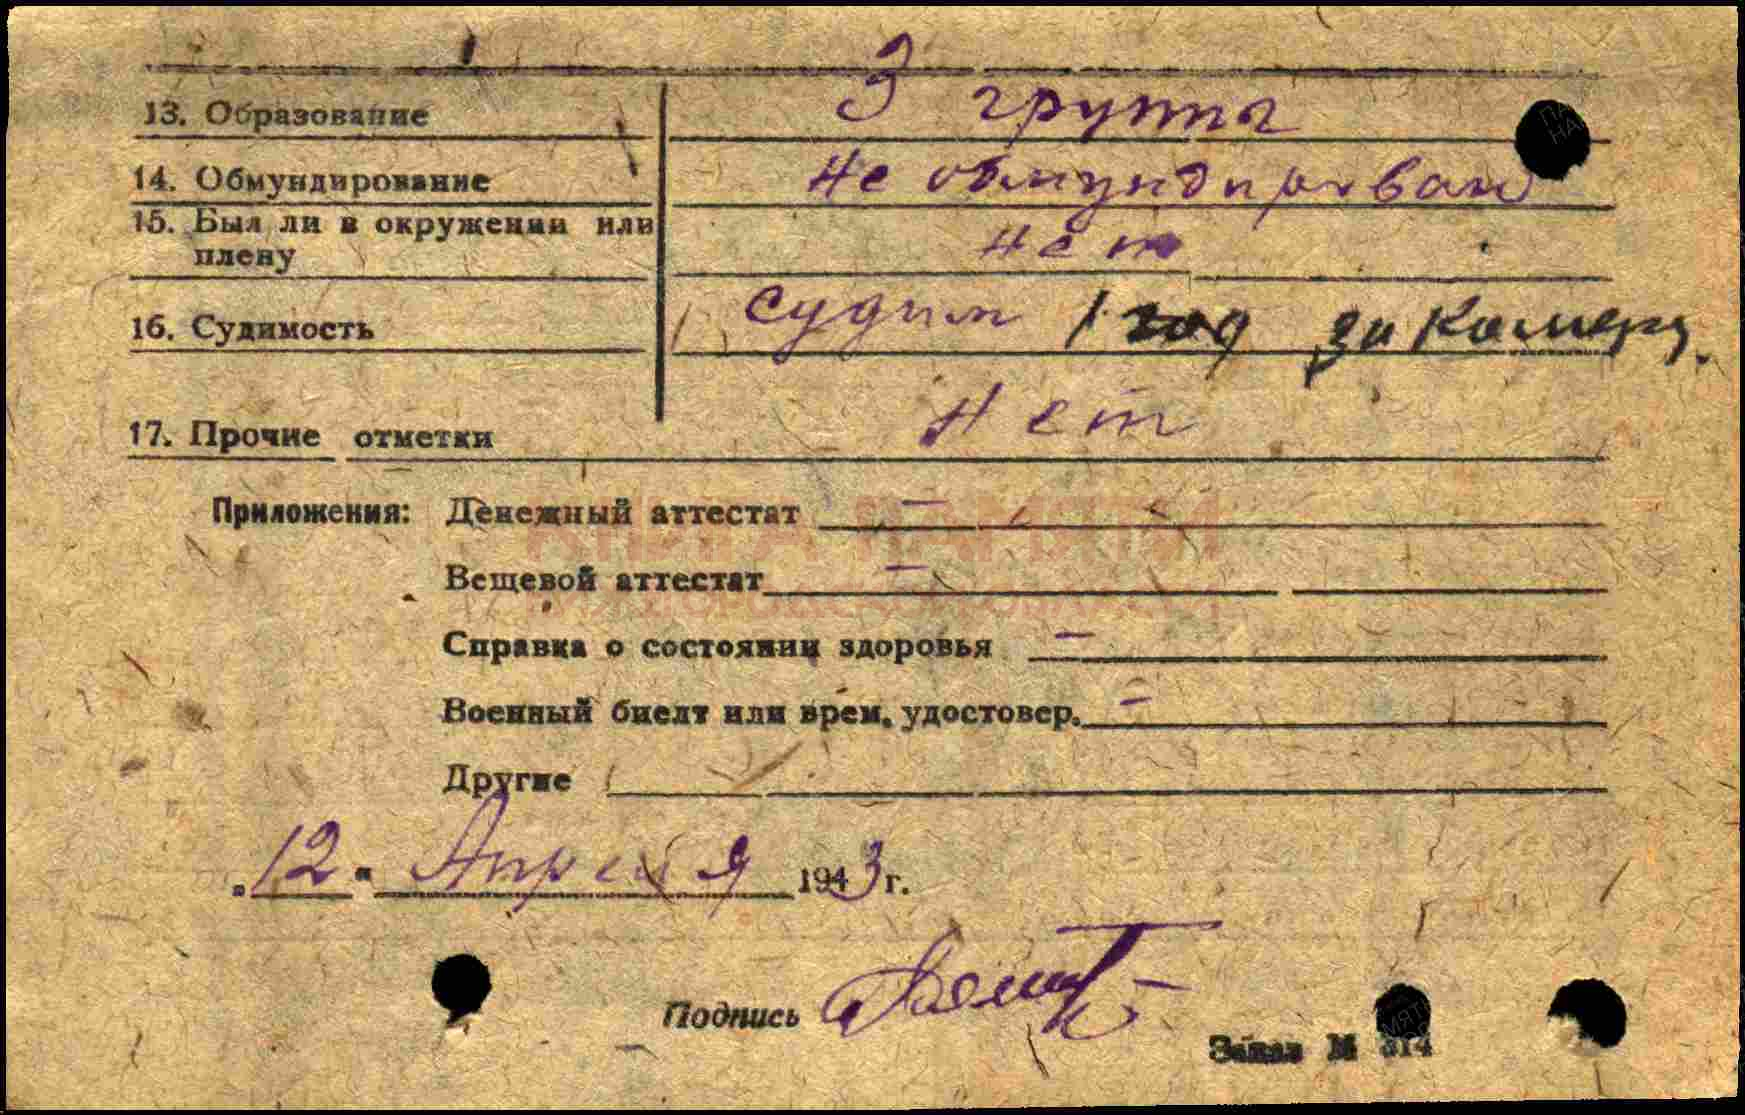 13. Образование 3 группы
14. Обмундирование Не обмундирован
15. Был ли в окружении или
плену нет
16. Судимость судим 1 год за
17. Прочие отметки Нет
КНИГА ПАМЯТИ
Приложения: Денежный аттестат —
Вещевой аттестат —
Справка о состоянии здоровья —
Военный биелт или врем. удостовер. —
Другие
„12“ Апреля 1943 г.
Подпись
Заказ № 314